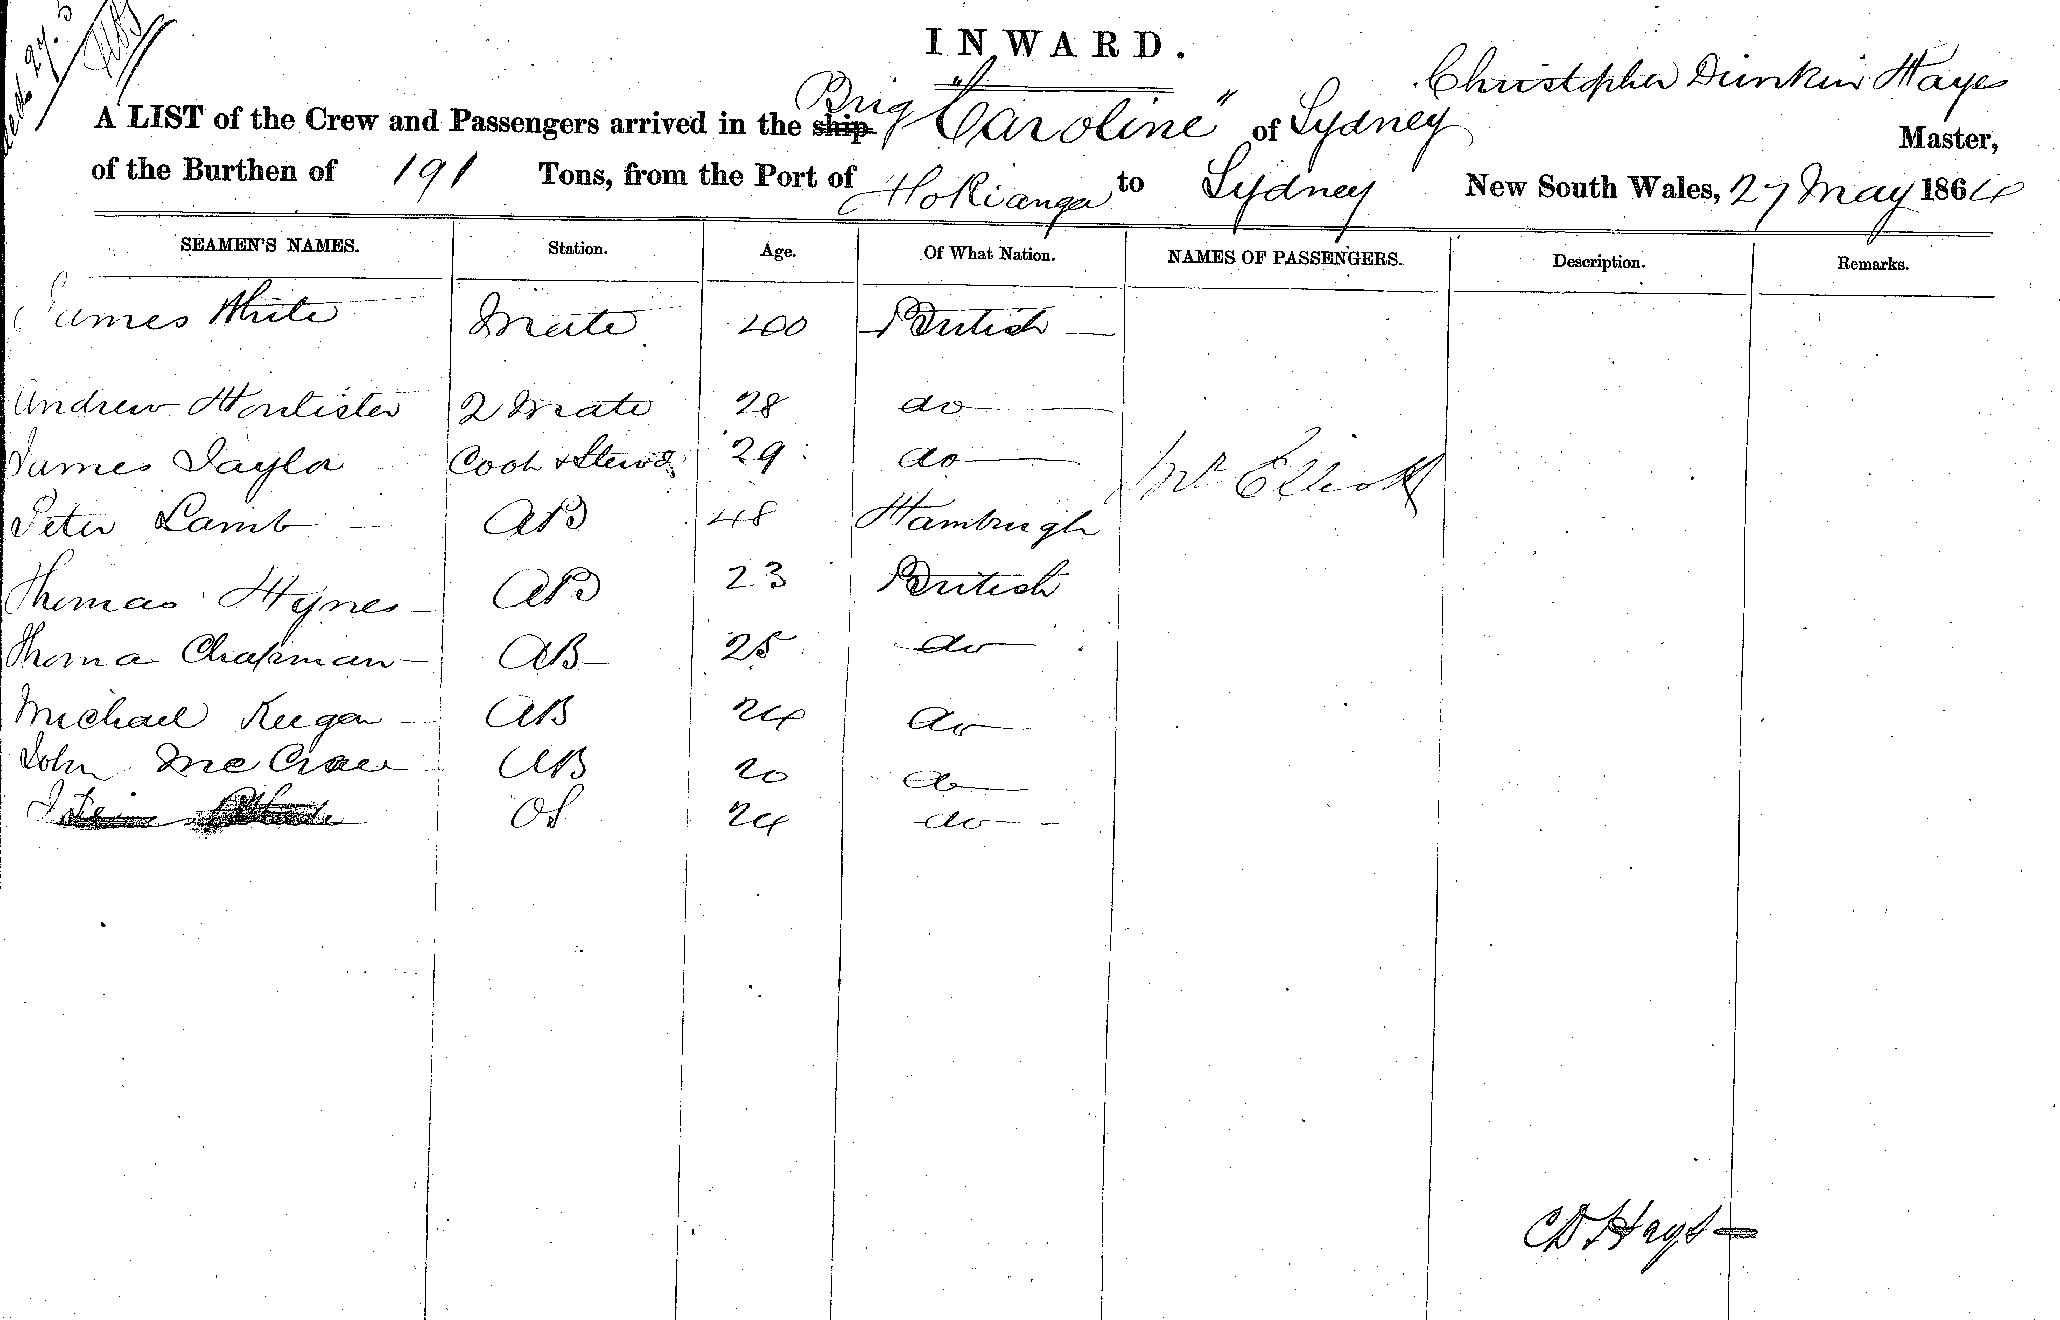 INWARD.
Christopher Dunkin Hayes
A LIST of the Crew and Passengers arrived in the ship Brig "Caroline" of Sydney Master,
of the Burthen of 191 Tons, from the Port of Hokianga to Sydney New South Wales, 27 May 1864
SEAMEN'S NAMES. Station. Age. Of What Nation. NAMES OF PASSENGERS. Description. Remarks.
James White Mate 40 British
Andrew 2 Mate 28 do
James Taylor Cook & Stewd 29 do Mr Elliott
Peter Lamb AB 48 Hambrugh
Thomas Hynes AB 23 British
Thoma Chapman AB 25 do
Michael Keegan AB 24 do
John AB 20 do
OS 24 do
CD Hays